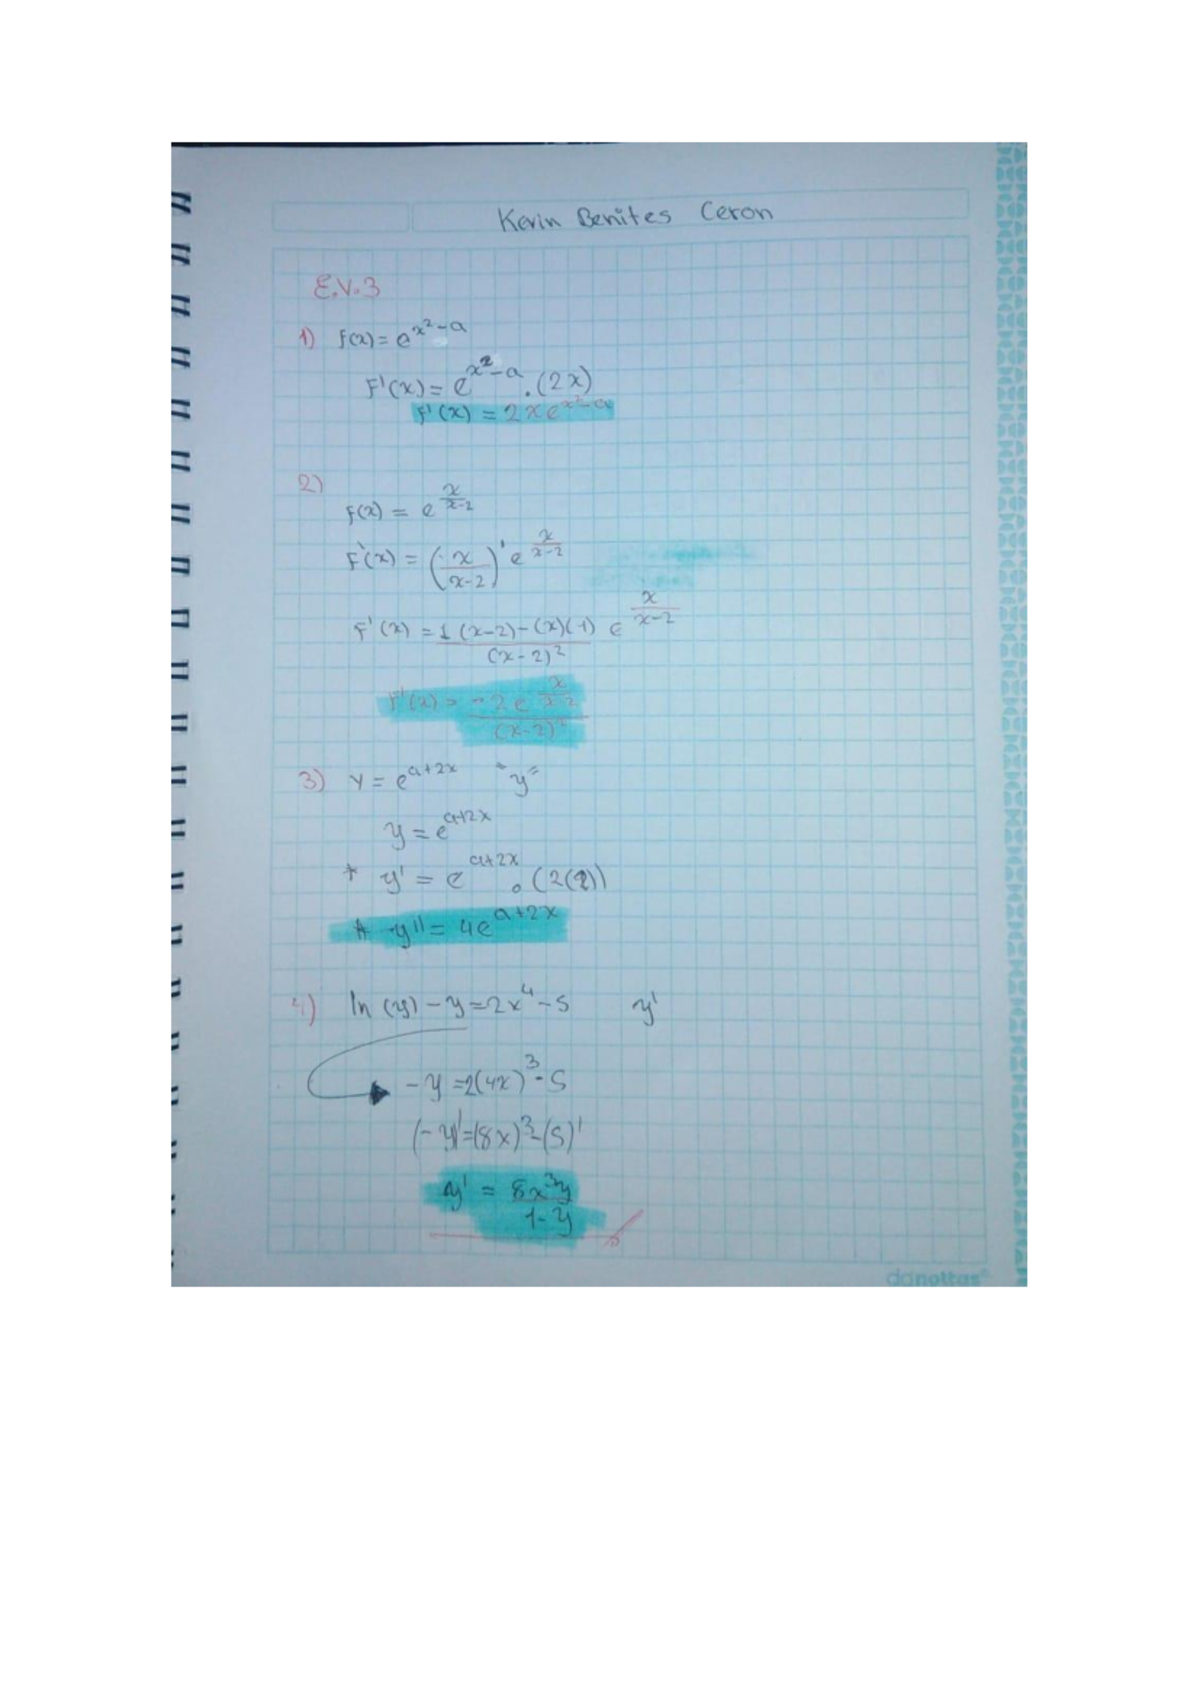 Kevin Benites Ceron
E.V.3
1) f(x) = e^{x²-a}
F'(x) = e^{x²-a} . (2x)
f'(x) = 2xe^{x²-a}
2)
f(x) = e^{x/(x-2)}
F'(x) = (x/(x-2))' e^{x/(x-2)}
F'(x) = (1(x-2)-(x)(1))/(x-2)² e^{x/(x-2)}
F'(x) = (-2e^{x/(x-2)})/(x-2)²
3) Y = e^{a+2x} "y"
y = e^{a+2x}
* y' = e^{a+2x} . (2(2))
* y'' = 4e^{a+2x}
4) ln (y) - y = 2x⁴ - 5 y'
- y = 2(4x)³ - 5
(- y)' = (8x)³ - (5)'
y' = 8x³y/(1-y)
danottas